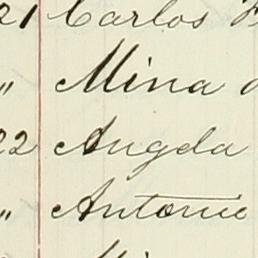 21 Carlos
" Mina
22 Angela
" Antonio